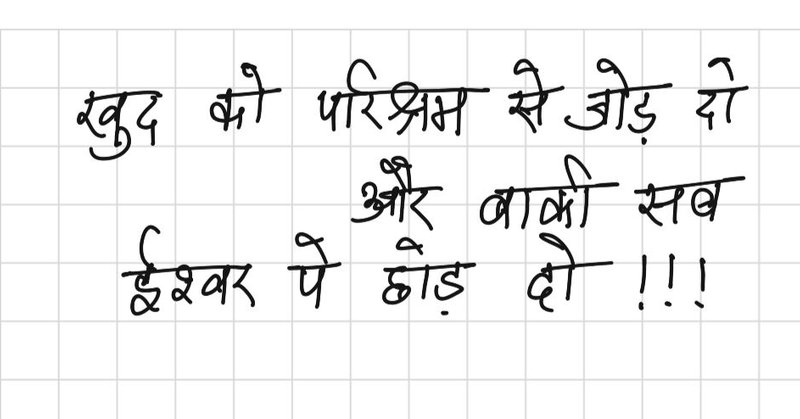 खुद को परिश्रम से जोड़ दो
और बाकी सब
ईश्वर पे छोड़ दो !!!